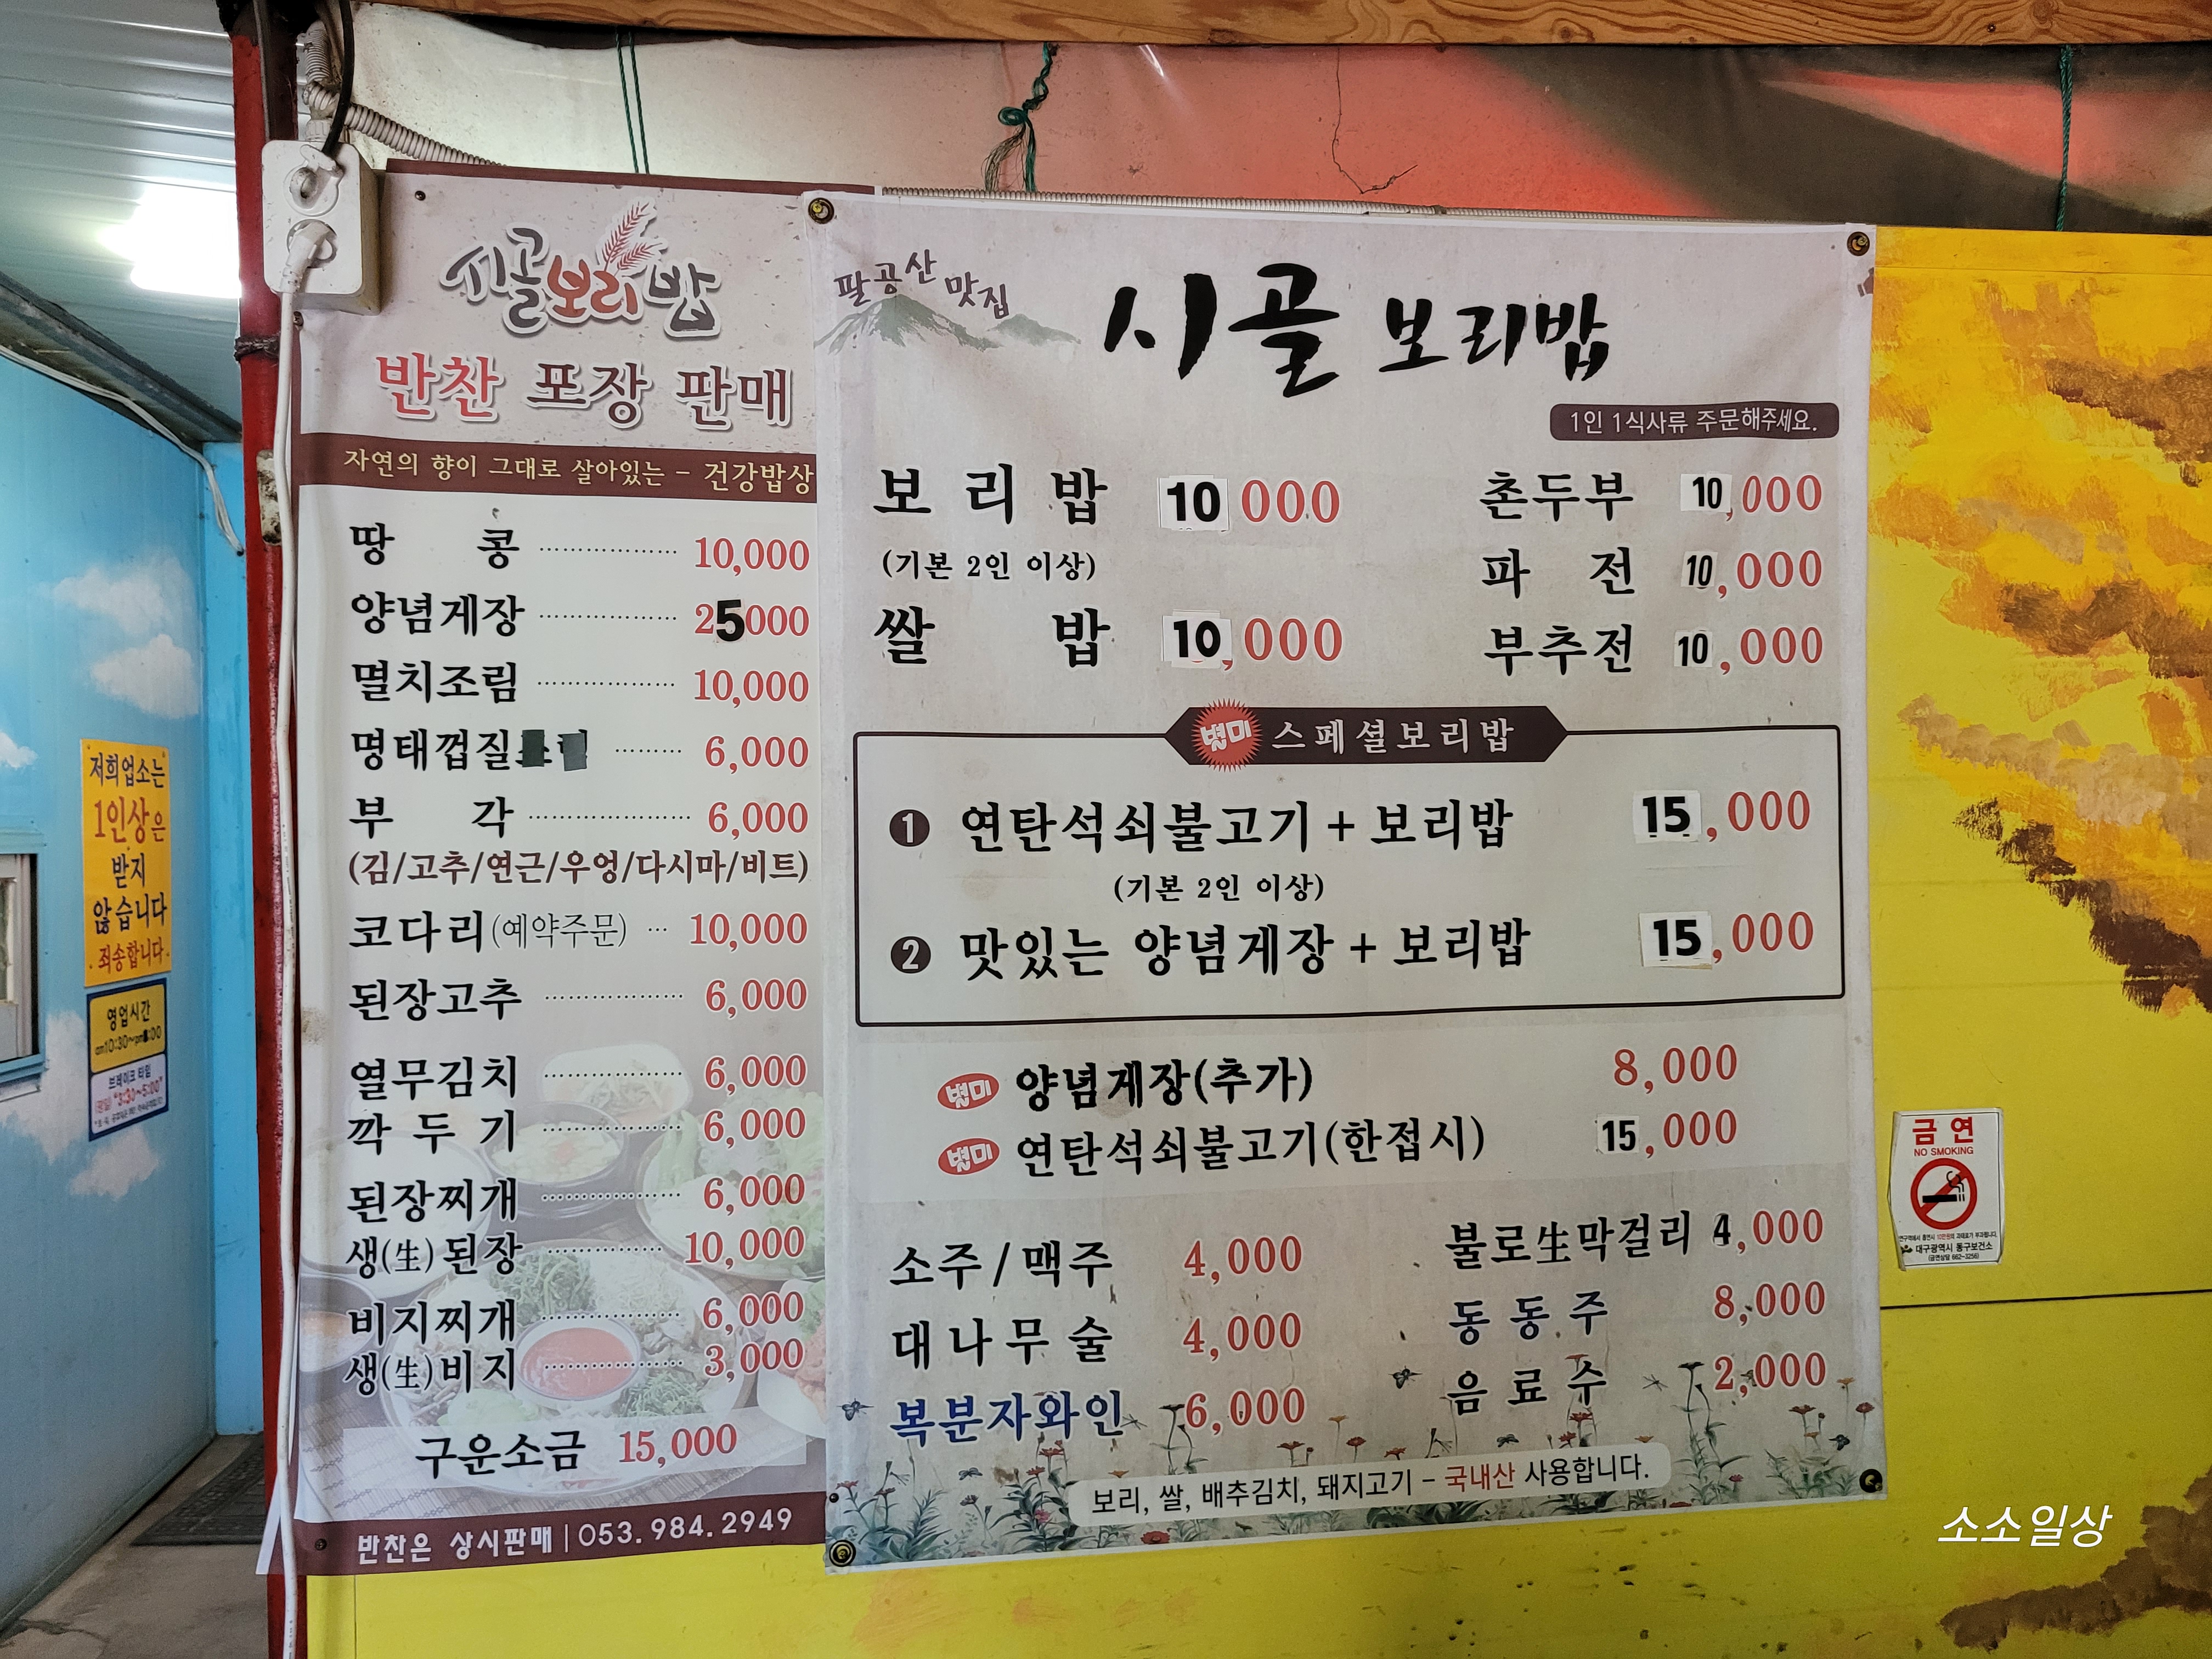 시골보리밥
반찬 포장 판매
자연의 향이 그대로 살아있는 - 건강밥상
땅콩 10,000
양념게장 25000
멸치조림 10,000
명태껍질 6,000
부각 6,000
(김/고추/연근/우엉/다시마/비트)
코다리(예약주문) 10,000
된장고추 6,000
열무김치 6,000
깍두기 6,000
된장찌개 6,000
생(生)된장 10,000
비지찌개 6,000
생(生)비지 3,000
구운소금 15,000
반찬은 상시판매 | 053.984.2949
팔공산 맛집
시골 보리밥
1인 1식사류 주문해주세요.
보리밥 10 000
(기본 2인 이상)
쌀밥 10,000
촌두부 10,000
파전 10,000
부추전 10,000
별미 스페셜보리밥
1 연탄석쇠불고기 + 보리밥 15,000
(기본 2인 이상)
2 맛있는 양념게장 + 보리밥 15,000
별미 양념게장(추가) 8,000
별미 연탄석쇠불고기(한접시) 15,000
소주/맥주 4,000
대나무술 4,000
복분자와인 6,000
불로生막걸리 4,000
동동주 8,000
음료수 2,000
보리, 쌀, 배추김치, 돼지고기 - 국내산 사용합니다.
저희업소는
1인상은
받지
않습니다
죄송합니다
영업시간
브레이크 타임
금연
NO SMOKING
대구광역시 동구보건소
(금연상담 662-3256)
소소일상